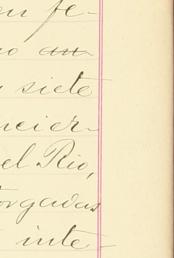 en fe-
no an
siete
ncier-
el Rio,
torgadas
inte-